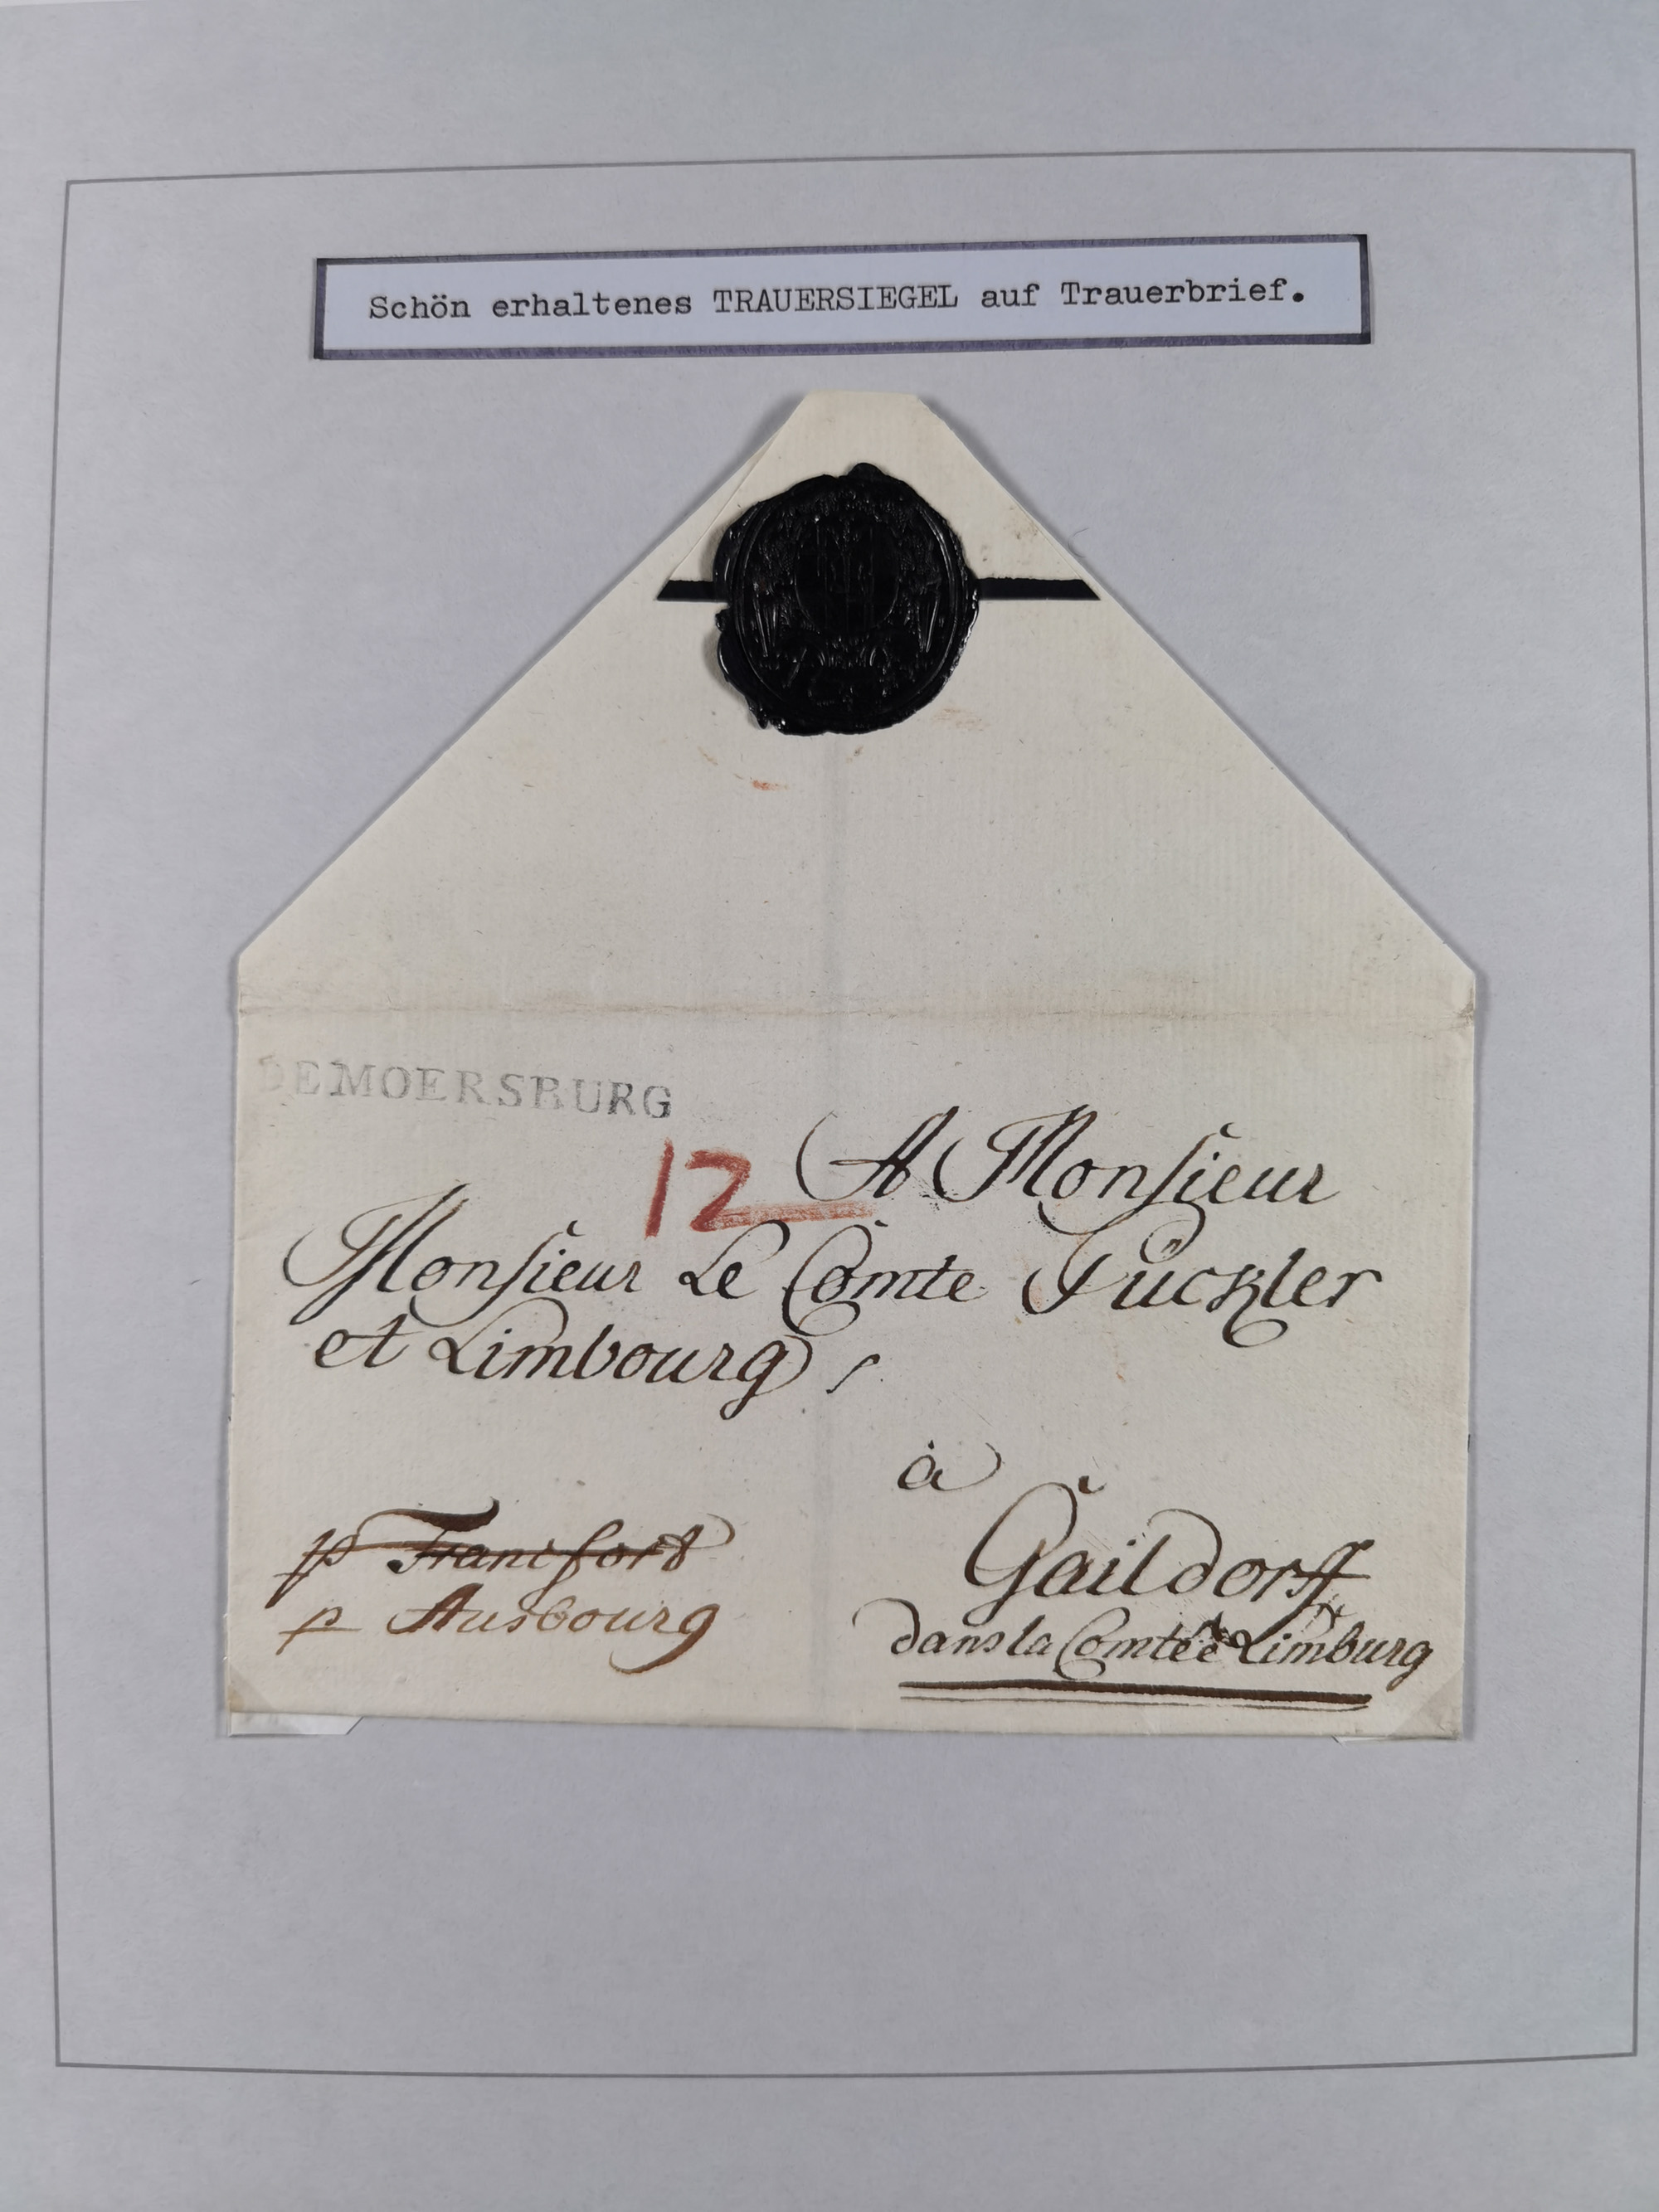 Schön erhaltenes TRAUERSIEGEL auf Trauerbrief.
DEMOERSBURG
12
A Monsieur
Monsieur Le Comte Pückler
et Limbourg
à
Gaildorff
dans la Comté de Limburg
p Francfort
p Ausbourg